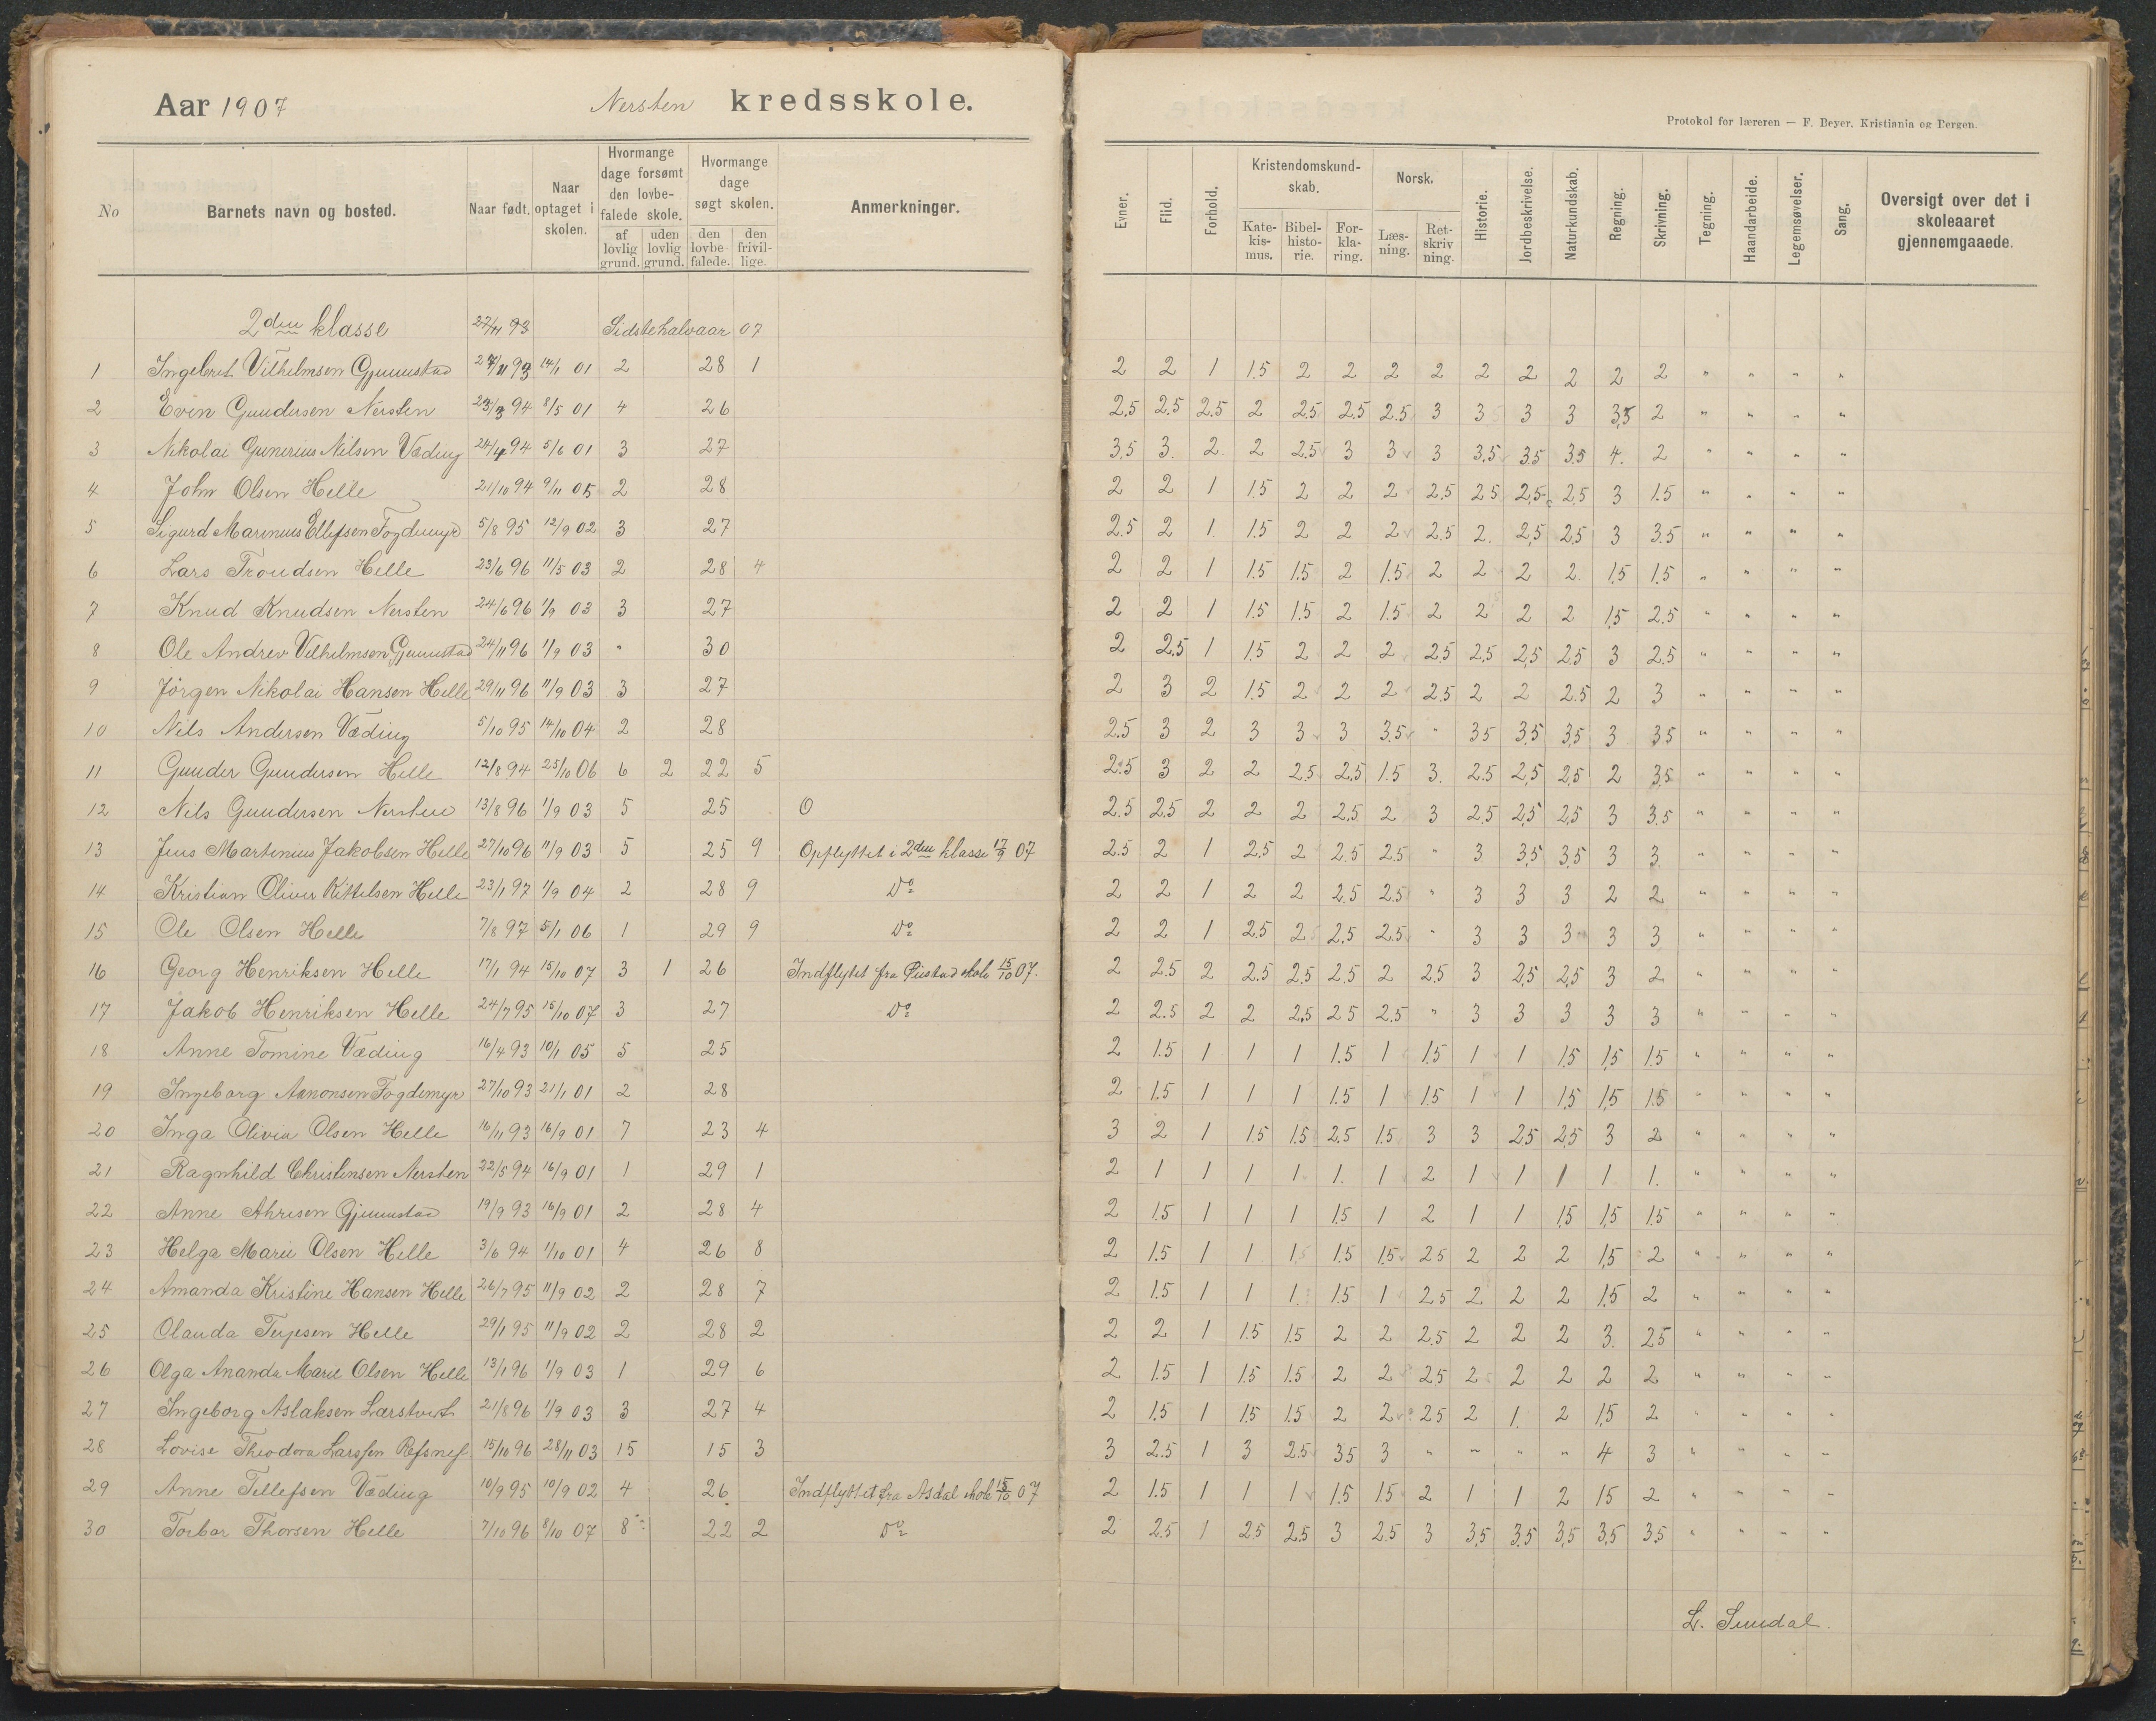 Aar 1907 Nersten kredsskole.
Protokol for læreren — F. Beyer. Kristiania og Bergen.
No Barnets navn og bosted. Naar født. Naar optaget i skolen. Hvormange dage forsømt den lovbefalede skole. af lovlig grund. uden lovlig grund. Hvormange dage søgt skolen. den lovbefalede. den frivillige. Anmerkninger. Evner. Flid. Forhold. Kristendomskundskab. Katekismus. Bibelhistorie. Forklaring. Norsk. Læsning. Retskrivning. Historie. Jordbeskrivelse. Naturkundskab. Regning. Skrivning. Tegning. Haandarbeide. Legemsøvelser. Sang. Oversigt over det i skoleaaret gjennemgaaede.
2den klasse 27/11 93 Sidste halvaar 07
1 Ingebret Vilhelmsen Gjennestad 27/11 93 14/1 01 2 28 1 2 2 1 1.5 2 2 2 2 2 2 2 2 2 " " " "
2 Even Gundersen Nersten 23/3 94 8/5 01 4 26 2.5 2.5 2.5 2 2.5 2.5 2.5 3 3 3 3 3.5 2 " " " "
3 Nikolai Gunerius Nilsen Væding 24/4 94 5/6 01 3 27 3,5 3. 2. 2 2.5 3 3 3 3.5 3.5 3.5 4. 2 " " " "
4 John Olsen Helle 21/10 94 9/11 05 2 28 2 2 1 1.5 2 2 2 2.5 2.5 2.5 2.5 3 1.5 " " " "
5 Sigurd Marinius Ellefsen Fogdemyr 5/8 95 12/9 02 3 27 2.5 2 1. 1.5 2 2 2 2.5 2. 2,5 2,5 3 3.5 " " " "
6 Lars Trondsen Helle 23/6 96 11/5 03 2 28 4 2 2 1 1.5 1.5 2 1.5 2 2 2 2. 1.5 1.5 " " " "
7 Knud Knudsen Nersten 24/6 96 1/9 03 3 27 2 2 1 1.5 1.5 2 1.5 2 2 2 2 1,5 2.5 " " " "
8 Ole Andrev Vilhelmsen Gjennestad 24/11 96 1/9 03 " 30 2 2.5 1 1.5 2 2 2 2.5 2,5 2,5 2.5 3 2.5 " " " "
9 Jørgen Nikolai Hansen Helle 29/11 96 11/9 03 3 27 2 3 2 1.5 2 2 2 2.5 2 2 2.5 2 3 " " " "
10 Nils Andersen Væding 5/10 95 14/10 04 2 28 2.5 3 2 3 3 3 3.5 " 3.5 3,5 3,5 3 3.5 " " " "
11 Gunder Gundersen Helle 12/8 94 25/10 06 6 2 22 5 2.5 3 2 2 2.5 2.5 1.5 3. 2.5 2,5 2,5 2 3,5 " " " "
12 Nils Gundersen Nersten 13/8 96 1/9 03 5 25 O 2.5 2.5 2 2 2 2.5 2 3 2.5 2,5 2,5 3 3.5 " " " "
13 Jens Martinius Jakobsen Helle 27/10 96 11/9 03 5 25 9 Opflyttet i 2den klasse 17/9 07 2.5 2 1 2,5 2 2.5 2.5 " 3 3,5 3,5 3 3 " " " "
14 Kristian Oliver Kittelsen Helle 23/1 97 1/9 04 2 28 9 Do 2 2 1 2 2 2.5 2.5 " 3 3 3 2 2 " " " "
15 Ole Olsen Helle 7/8 97 5/1 06 1 29 9 Do 2 2 1 2.5 2 2.5 2.5 " 3 3 3 3 3 " " " "
16 Georg Henriksen Helle 17/1 94 15/10 07 3 1 26 Indflytet fra skole 15/10 07. 2 2.5 2 2.5 2.5 2.5 2 2.5 3 2,5 2,5 3 2 " " " "
17 Jakob Henriksen Helle 24/7 95 15/10 07 3 27 Do 2 2.5 2 2 2.5 2.5 2.5 " 3 3 3 3 3 " " " "
18 Anne Tomine Væding 16/4 93 10/1 05 5 25 2 1.5 1 1 1 1.5 1 1.5 1 1 1.5 1,5 1.5 " " " "
19 Ingeborg Aanonsen Fogdemyr 27/10 93 21/1 01 2 28 2 1.5 1 1 1 1.5 1 1.5 1 1 1.5 1,5 1.5 " " " "
20 Inga Olivia Olsen Helle 16/11 93 16/9 01 7 23 4 3 2 1 1.5 1.5 2.5 1.5 3 3 2.5 2,5 3 2 " " " "
21 Ragnhild Christensen Nersten 22/5 94 16/9 01 1 29 1 2 1 1 1 1 1. 1 2 1 1 1 1 1. " " " "
22 Anne Ahrisen Gjennestad 19/9 93 16/9 01 2 28 4 2 1.5 1 1 1 1.5 1 2 1 1 1,5 1,5 1.5 " " " "
23 Helga Marie Olsen Helle 3/6 94 1/10 01 4 26 8 2 1.5 1 1 1 1.5 1.5 2.5 2 2 2 1,5 2 " " " "
24 Amanda Kristine Hansen Helle 26/7 95 11/9 02 2 28 7 2 1.5 1 1 1 1.5 1 2.5 2 2 2 1.5 2 " " " "
25 Olanda Terjesen Helle 29/1 95 11/9 02 2 28 2 2 2 1 1.5 1.5 2 2 2.5 2 2 2 3. 2.5 " " " "
26 Olga Ananda Marie Olsen Helle 13/1 96 1/9 03 1 29 6 2 1.5 1 1.5 1.5 2 2 2.5 2 2 2 2 2 " " " "
27 Ingeborg Aslaksen Larstvert 21/8 96 1/9 03 3 27 4 2 1.5 1 1.5 1.5 2 2 2.5 2 1. 2 1,5 2 " " " "
28 Lovise Theodora Larssen Refsnes 15/10 96 28/11 03 15 15 3 3 2.5 1 3 2.5 3.5 3 " " " " 4 3 " " " "
29 Anne Tellefsen Væding 10/9 95 10/9 02 4 26 Indflyttet fra Asdal skole 15/10 07 2 1.5 1 1 1 1.5 1.5 2 1 1 2 1.5 2 " " " "
30 Torbor Thorsen Helle 7/10 96 8/10 07 8 22 2 Do 2 2.5 1 2.5 2.5 3 2.5 3 3,5 3.5 3,5 3,5 3.5 " " " "
L. Sundal.